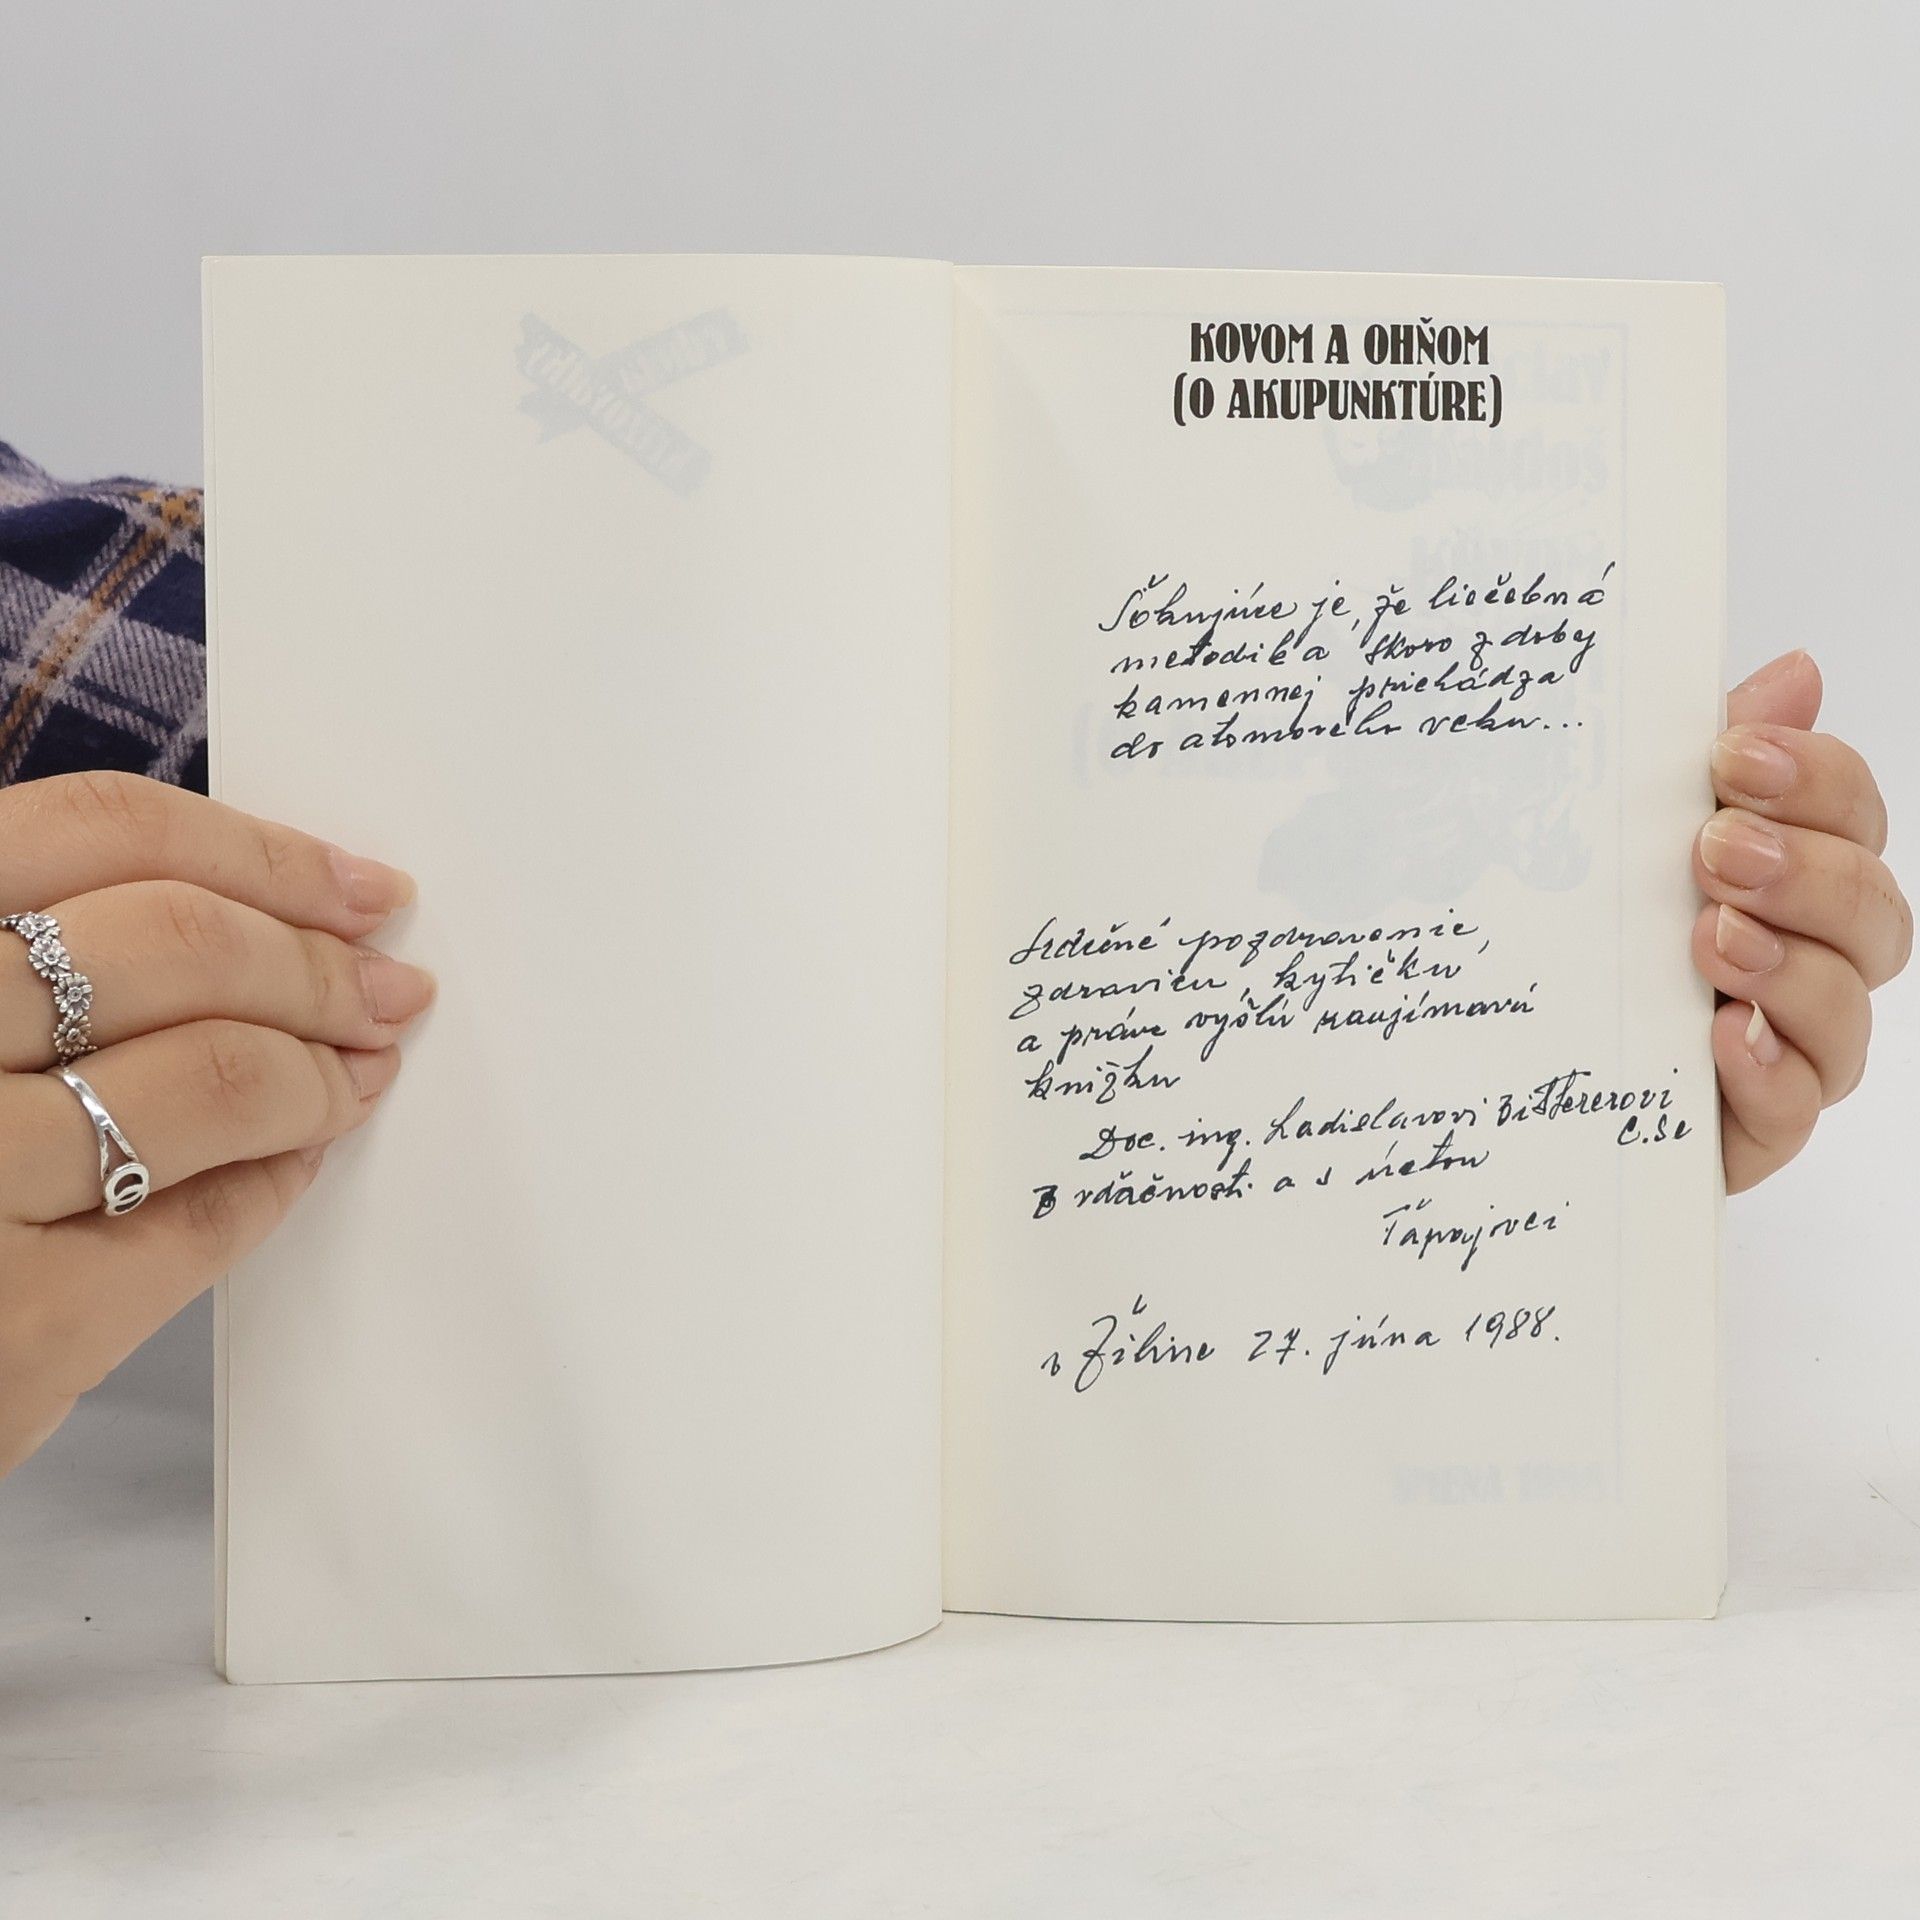 KOVOM A OHŇOM
(O AKUPUNKTÚRE)
Šokujúce je, že liečebná
metodika skoro z doby
kamennej prichádza
do atomového veku...
Srdečné pozdravenie,
zdravicu, kytičku
a práve vyšlú zaujímavú
knižku
Doc. ing. Ladislavovi
C.Sc
z vďačnosti a s úctou
Ťápajovci
v Žiline 27. júna 1988.